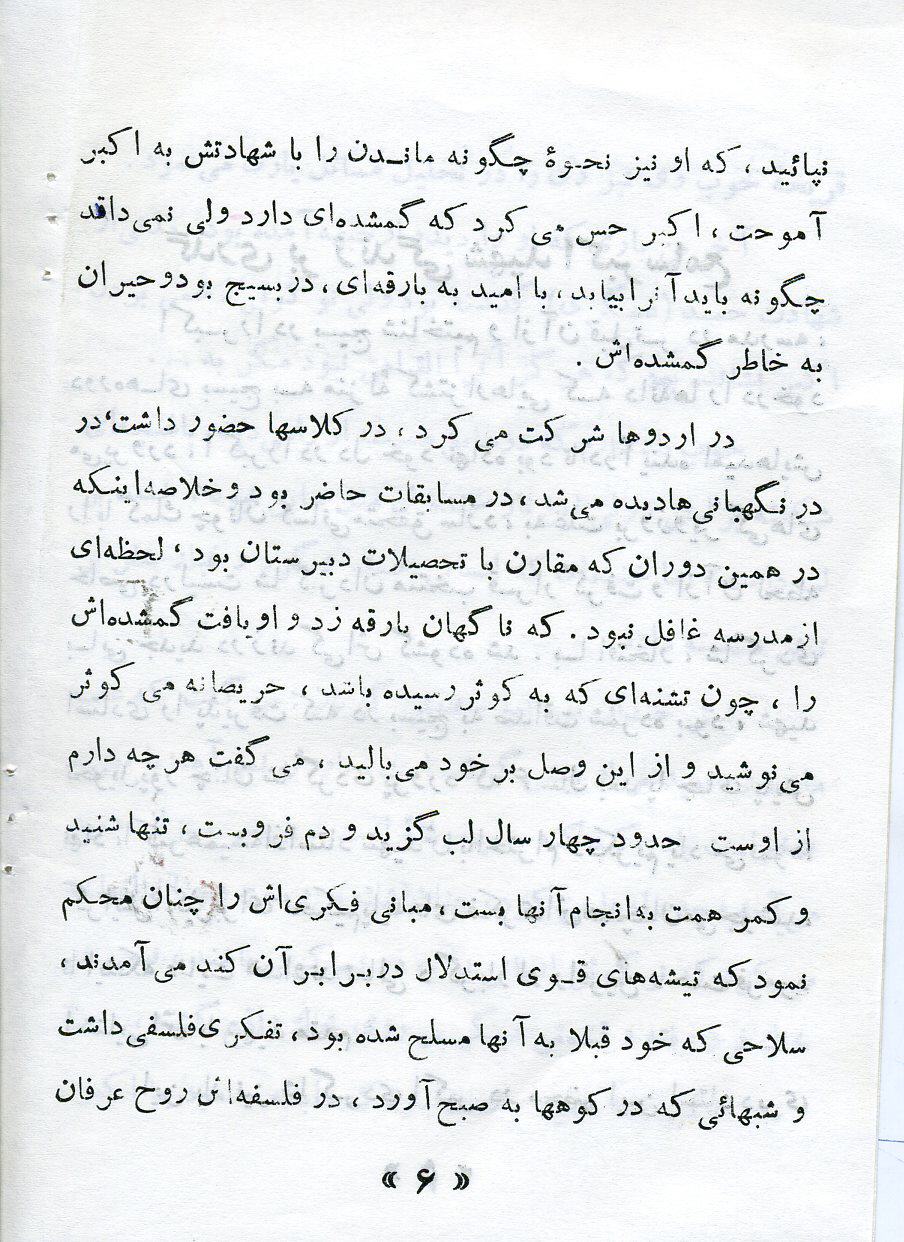 نپائید ، که او نیز نحوهٔ چگونه ماندن را با شهادتش به اکبر
آموحت ، اکبر حس می کرد که گمشده‌ای دارد ولی نمی‌داقد
چگونه باید آنرا بیابد ، با امید به بارقه‌ای ، در بسیج بود و حیران
به خاطر گمشده‌اش .
در اردوها شرکت می کرد ، در کلاسها حضور داشت ، در
در نگهبانی‌ها دیده می‌شد ، در مسابقات حاضر بود و خلاصه اینکه
در همین دوران که مقارن با تحصیلات دبیرستان بود ، لحظه‌ای
از مدرسه غافل نبود . که ناگهان بارقه زد و او یافت گمشده‌اش
را ، چون تشنه‌ای که به کوثر رسیده باشد ، حریصانه می کوثر
می‌نوشید و از این وصل بر خود می‌بالید ، می گفت هر چه دارم
از اوست حدود چهار سال لب گزید و دم فروبست ، تنها شنید
و کمر همت به انجام آنها بست ، مبانی فکری‌اش را چنان محکم
نمود که تیشه‌های قوی استدلال در برابر آن کند می‌آمدند ،
سلاحی که خود قبلا به آنها مسلح شده بود ، تفکری فلسفی داشت
و شبهائی که در کوهها به صبح آورد ، در فلسفه‌اش روح عرفان
« ۶ »